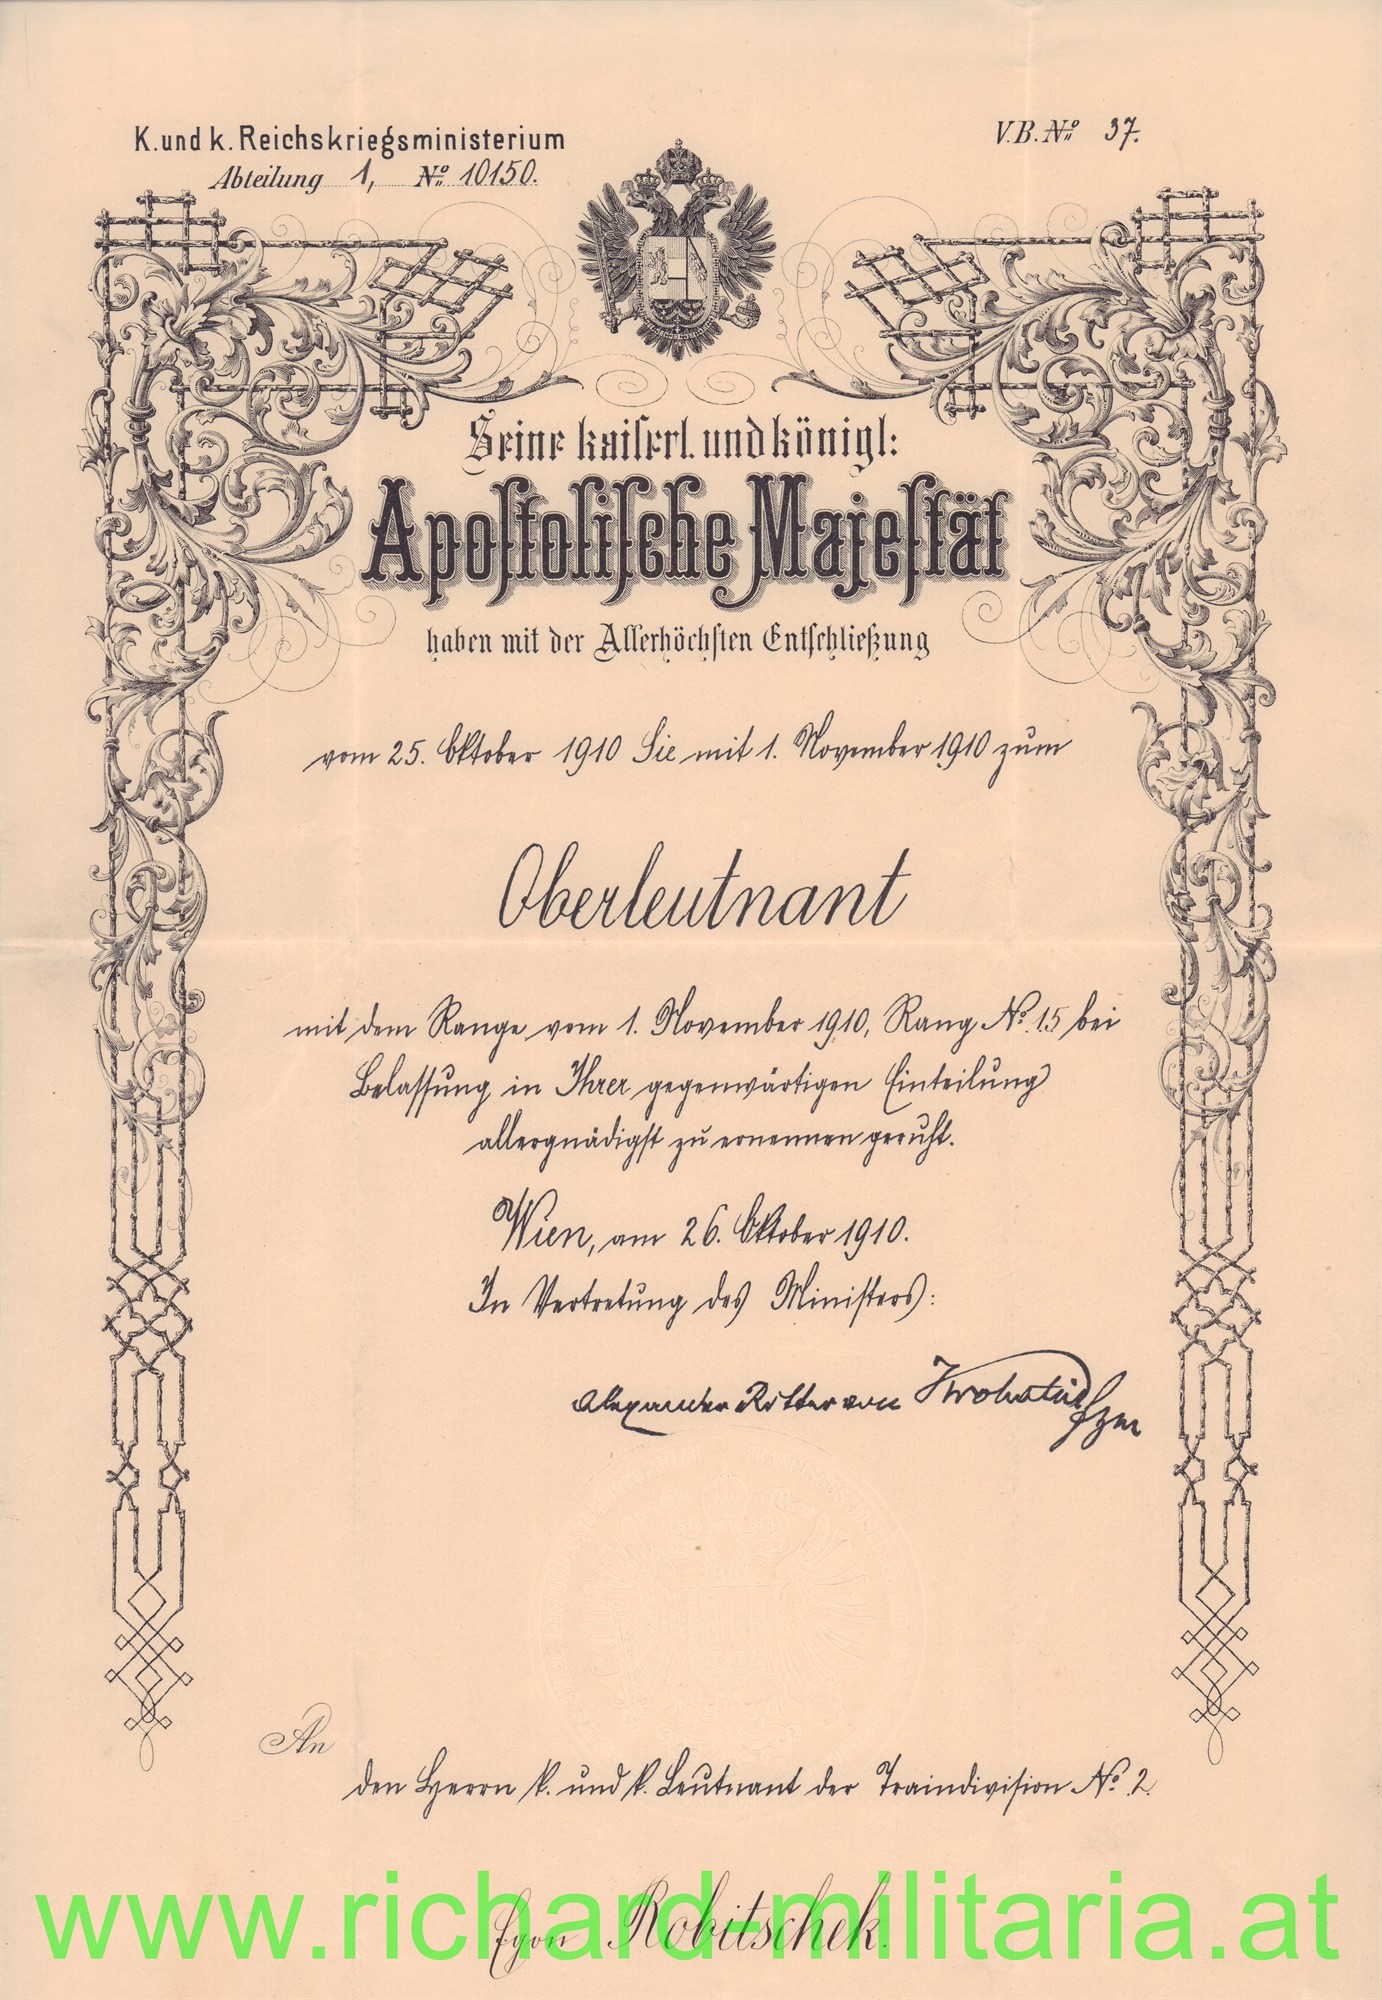 K. und k. Reichskriegsministerium
V.B. No 37.
Abteilung 1, No 10150.
Seine kaiserl. und königl:
Apostolische Majestät
haben mit der Allerhöchsten Entschließung
vom 25. Oktober 1910 Sie mit 1. November 1910 zum
Oberleutnant
mit dem Range vom 1. November 1910, Rang No. 15 bei
Belassung in Ihrer gegenwärtigen Einteilung
allergnädigst zu ernennen geruht.
Wien, am 26. Oktober 1910.
In Vertretung des Ministers:
Alexander Ritter von Krobatin
An
den Herrn k. und k. Leutnant der Traindivision No. 2.
Egon Robitschek.
www.richard-militaria.at